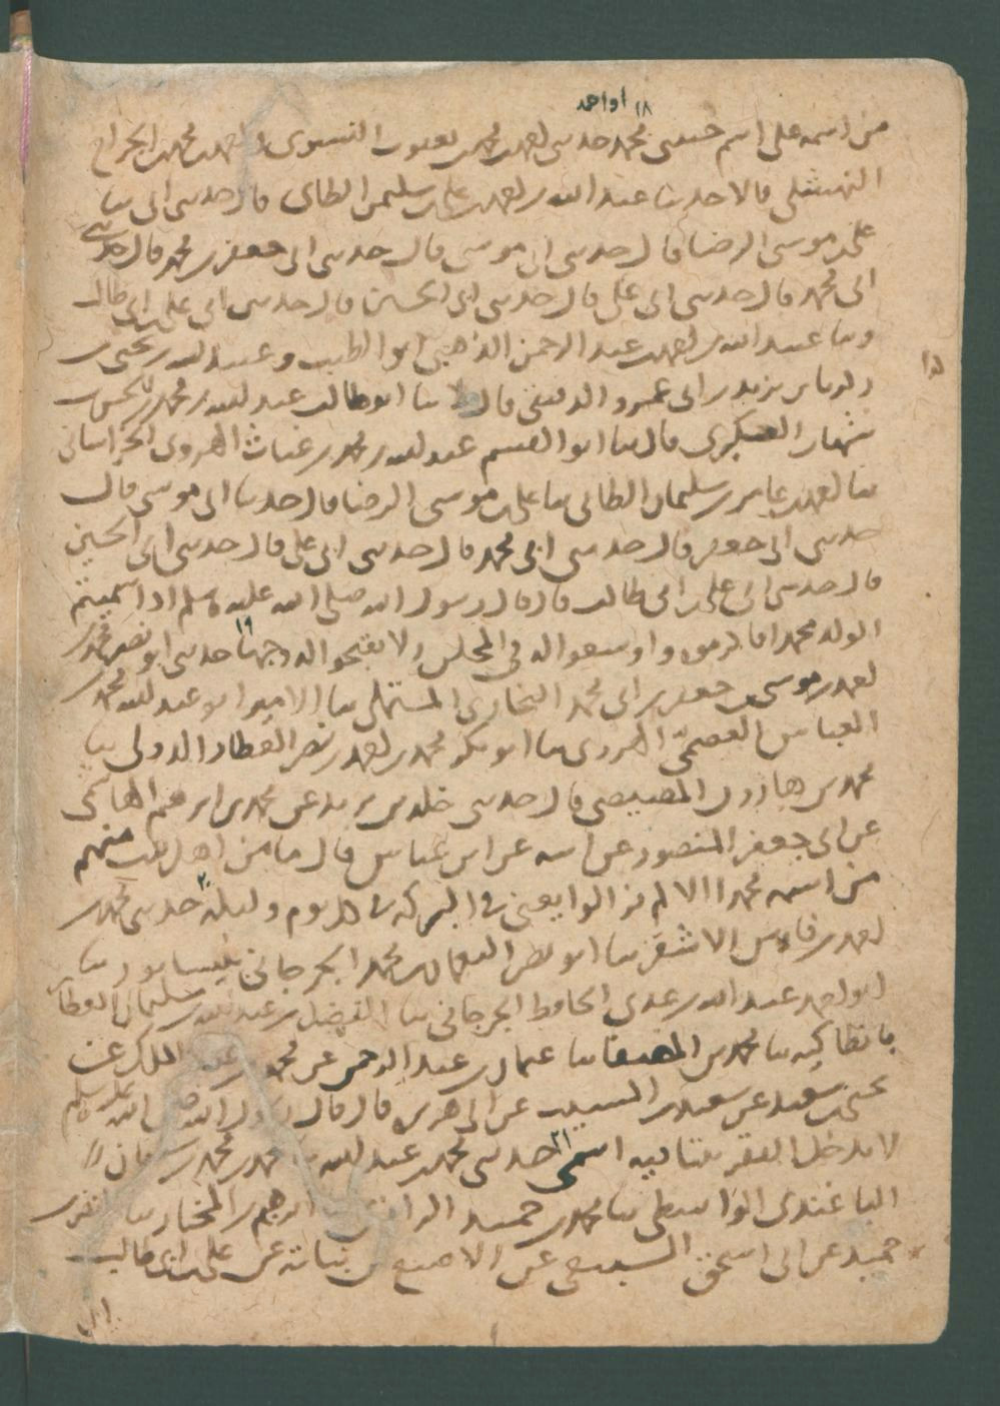 ١٨ او احمد
من اسمه على اسم حدثنى محمد حدثنى احمد بن محمد بن يعقوب النسوى احمد بن محمد بن الجراح
النهشلى قالا حدثنا عبد الله بن احمد بن على بن سليمن الطاى قال حدثنى ابى نا
على بن موسى الرضا قال حدثنى ابى موسى قال حدثنى ابى جعفر بن محمد قال حدثنى
ابى محمد قال حدثنى ابى على قال حدثنى ابى الحسين قال حدثنى ابى على بن ابى طالب
ونا عبيد الله بن احمد بن عبد الرحمن الذهبى ابو الطيب وعبد الله بن يحيى بن
زكريا بن يزيد بن ابى عمرو الدقيقى قالا نا ابو طالب عبد الله بن محمد بن الحسن بن
شهاب العكبرى قال نا ابو القسم عبد الله بن محمد بن غياث الهروى الخراسانى
نا احمد بن عامر بن سليمان الطائى نا على بن موسى الرضا قال حدثنا ابى موسى قال
حدثنى ابى جعفر قال حدثنى ابى محمد قال حدثنى ابى على قال حدثنى ابى الحسين
قال حدثنى ابى على بن ابى طالب قال قال رسول الله صلى الله عليه وسلم اذا سميتم
الولد محمدا فاكرموه واوسعوا له فى المجلس ولا تقبحوا له وجها ١٩ حدثنى ابو نصر محمد بن
احمد بن موسى بن جعفر بن ابى محمد البخارى المستملى نا الامير ابو عبد الله محمد بن
العباس العصمى الهروى نا ابو بكر محمد بن احمد بن نصر العطار الدولى نا
محمد بن هارون المصيصى قال حدثنى خلد بن يزيد عن محمد بن ابرهيم الهاشمى
عن ابى جعفر المنصور عن ابيه عن ابن عباس قال ما من اهل بيت منهم
من اسمه محمد الا لم يزالوا يعنى فى البركة فى كل يوم وليلة ٢٠ حدثنى محمد بن
احمد بن فارس الاشقر نا ابو نصر النعمان بن محمد الجرجانى بنيسابور نا
ابو احمد عبد الله بن عدى الحافظ الجرجانى نا الفضل بن عبد الله بن سليمان العطار
بانطاكيه نا محمد بن المصفا نا عثمان بن عبد الرحمن عن محمد بن عبد الملك عن
يحيى بن سعيد عن سعيد بن المسيب عن ابى هريرة قال قال رسول الله صلى الله عليه وسلم
لا يدخل الفقر بيتا فيه اسمى ٢١ حدثنى محمد بن عبد الله نا محمد بن محمد بن سليمان
الباغندى الواسطى نا محمد بن حميد الرازى نا ابرهيم بن المختار نا النضر بن
حميد عن ابى اسحق السبيعى عن الاصبغ بن نباتة عن على بن ابى طالب